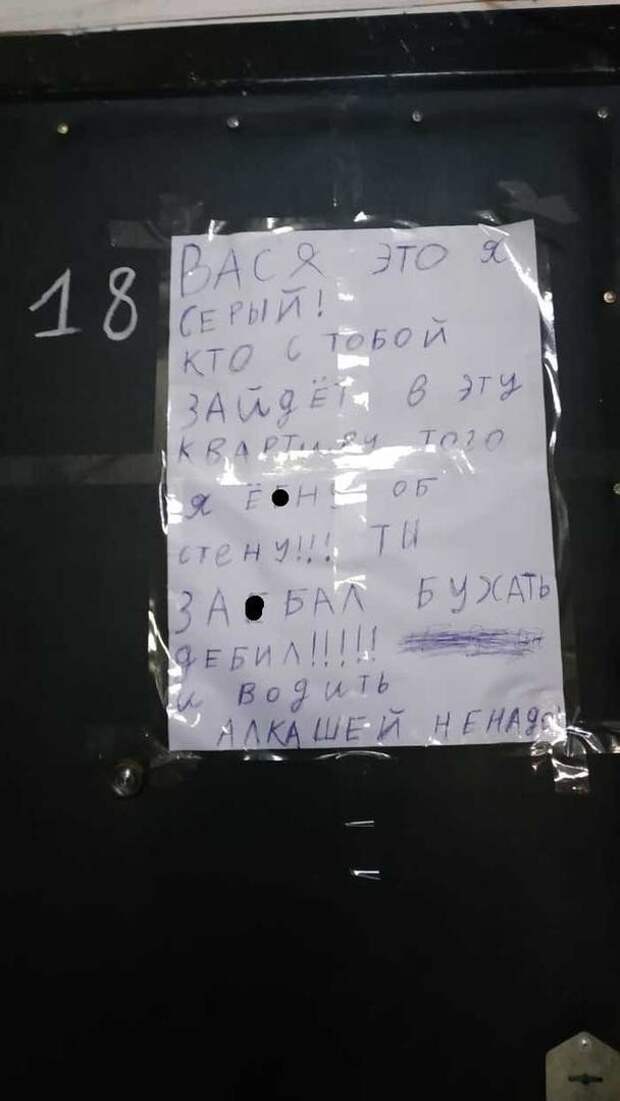 18
ВАСЯ ЭТО Я
СЕРЫЙ!
КТО С ТОБОЙ
ЗАЙДЁТ В ЭТУ
КВАРТИРУ ТОГО
Я Ё●НУ ОБ
СТЕНУ!!! ТЫ
ЗА●БАЛ БУХАТЬ
ДЕБИЛ!!!!!
И ВОДИТЬ
АЛКАШЕЙ НЕНАДО